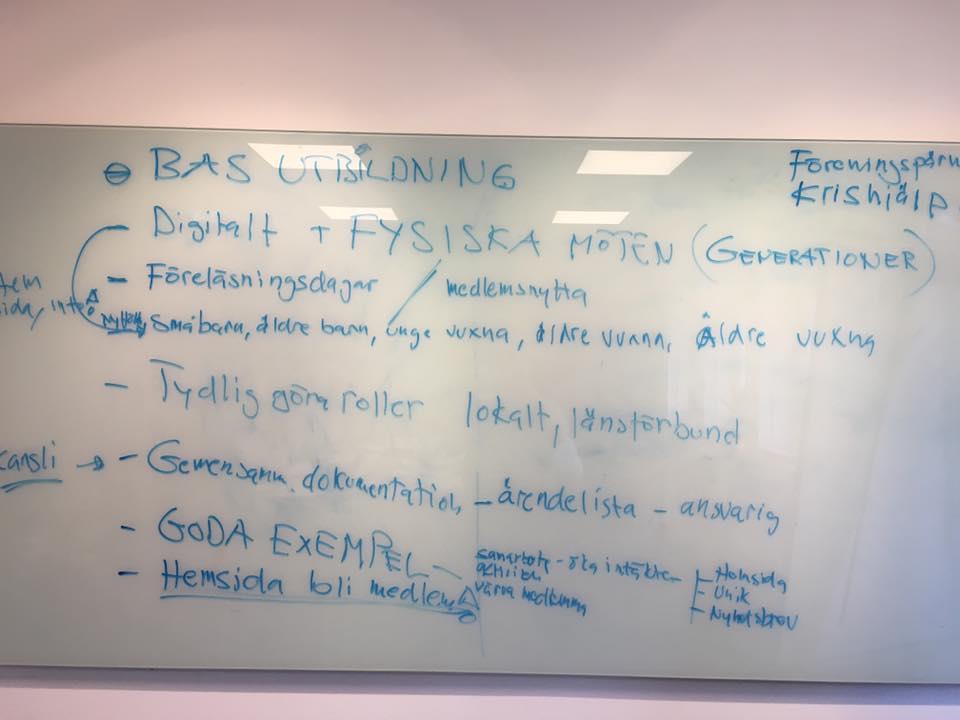 BAS UTBILDNING
Föreningspärm
Krishjälp
- Digitalt + FYSISKA MÖTEN (GENERATIONER)
- Föreläsningsdagar / medlemsnytta
Småbarn, äldre barn, unge vuxna, äldre vuxna, Äldre vuxna
- Tydlig göra roller lokalt, länsförbund
kansli → - Gemensam. dokumentation, - ärendelista - ansvarig
- GODA EXEMPEL - samarbete - öka intäkter - Hemsida
- Unik
värva medlemmar - Nyhetsbrev
- Hemsida bli medlem